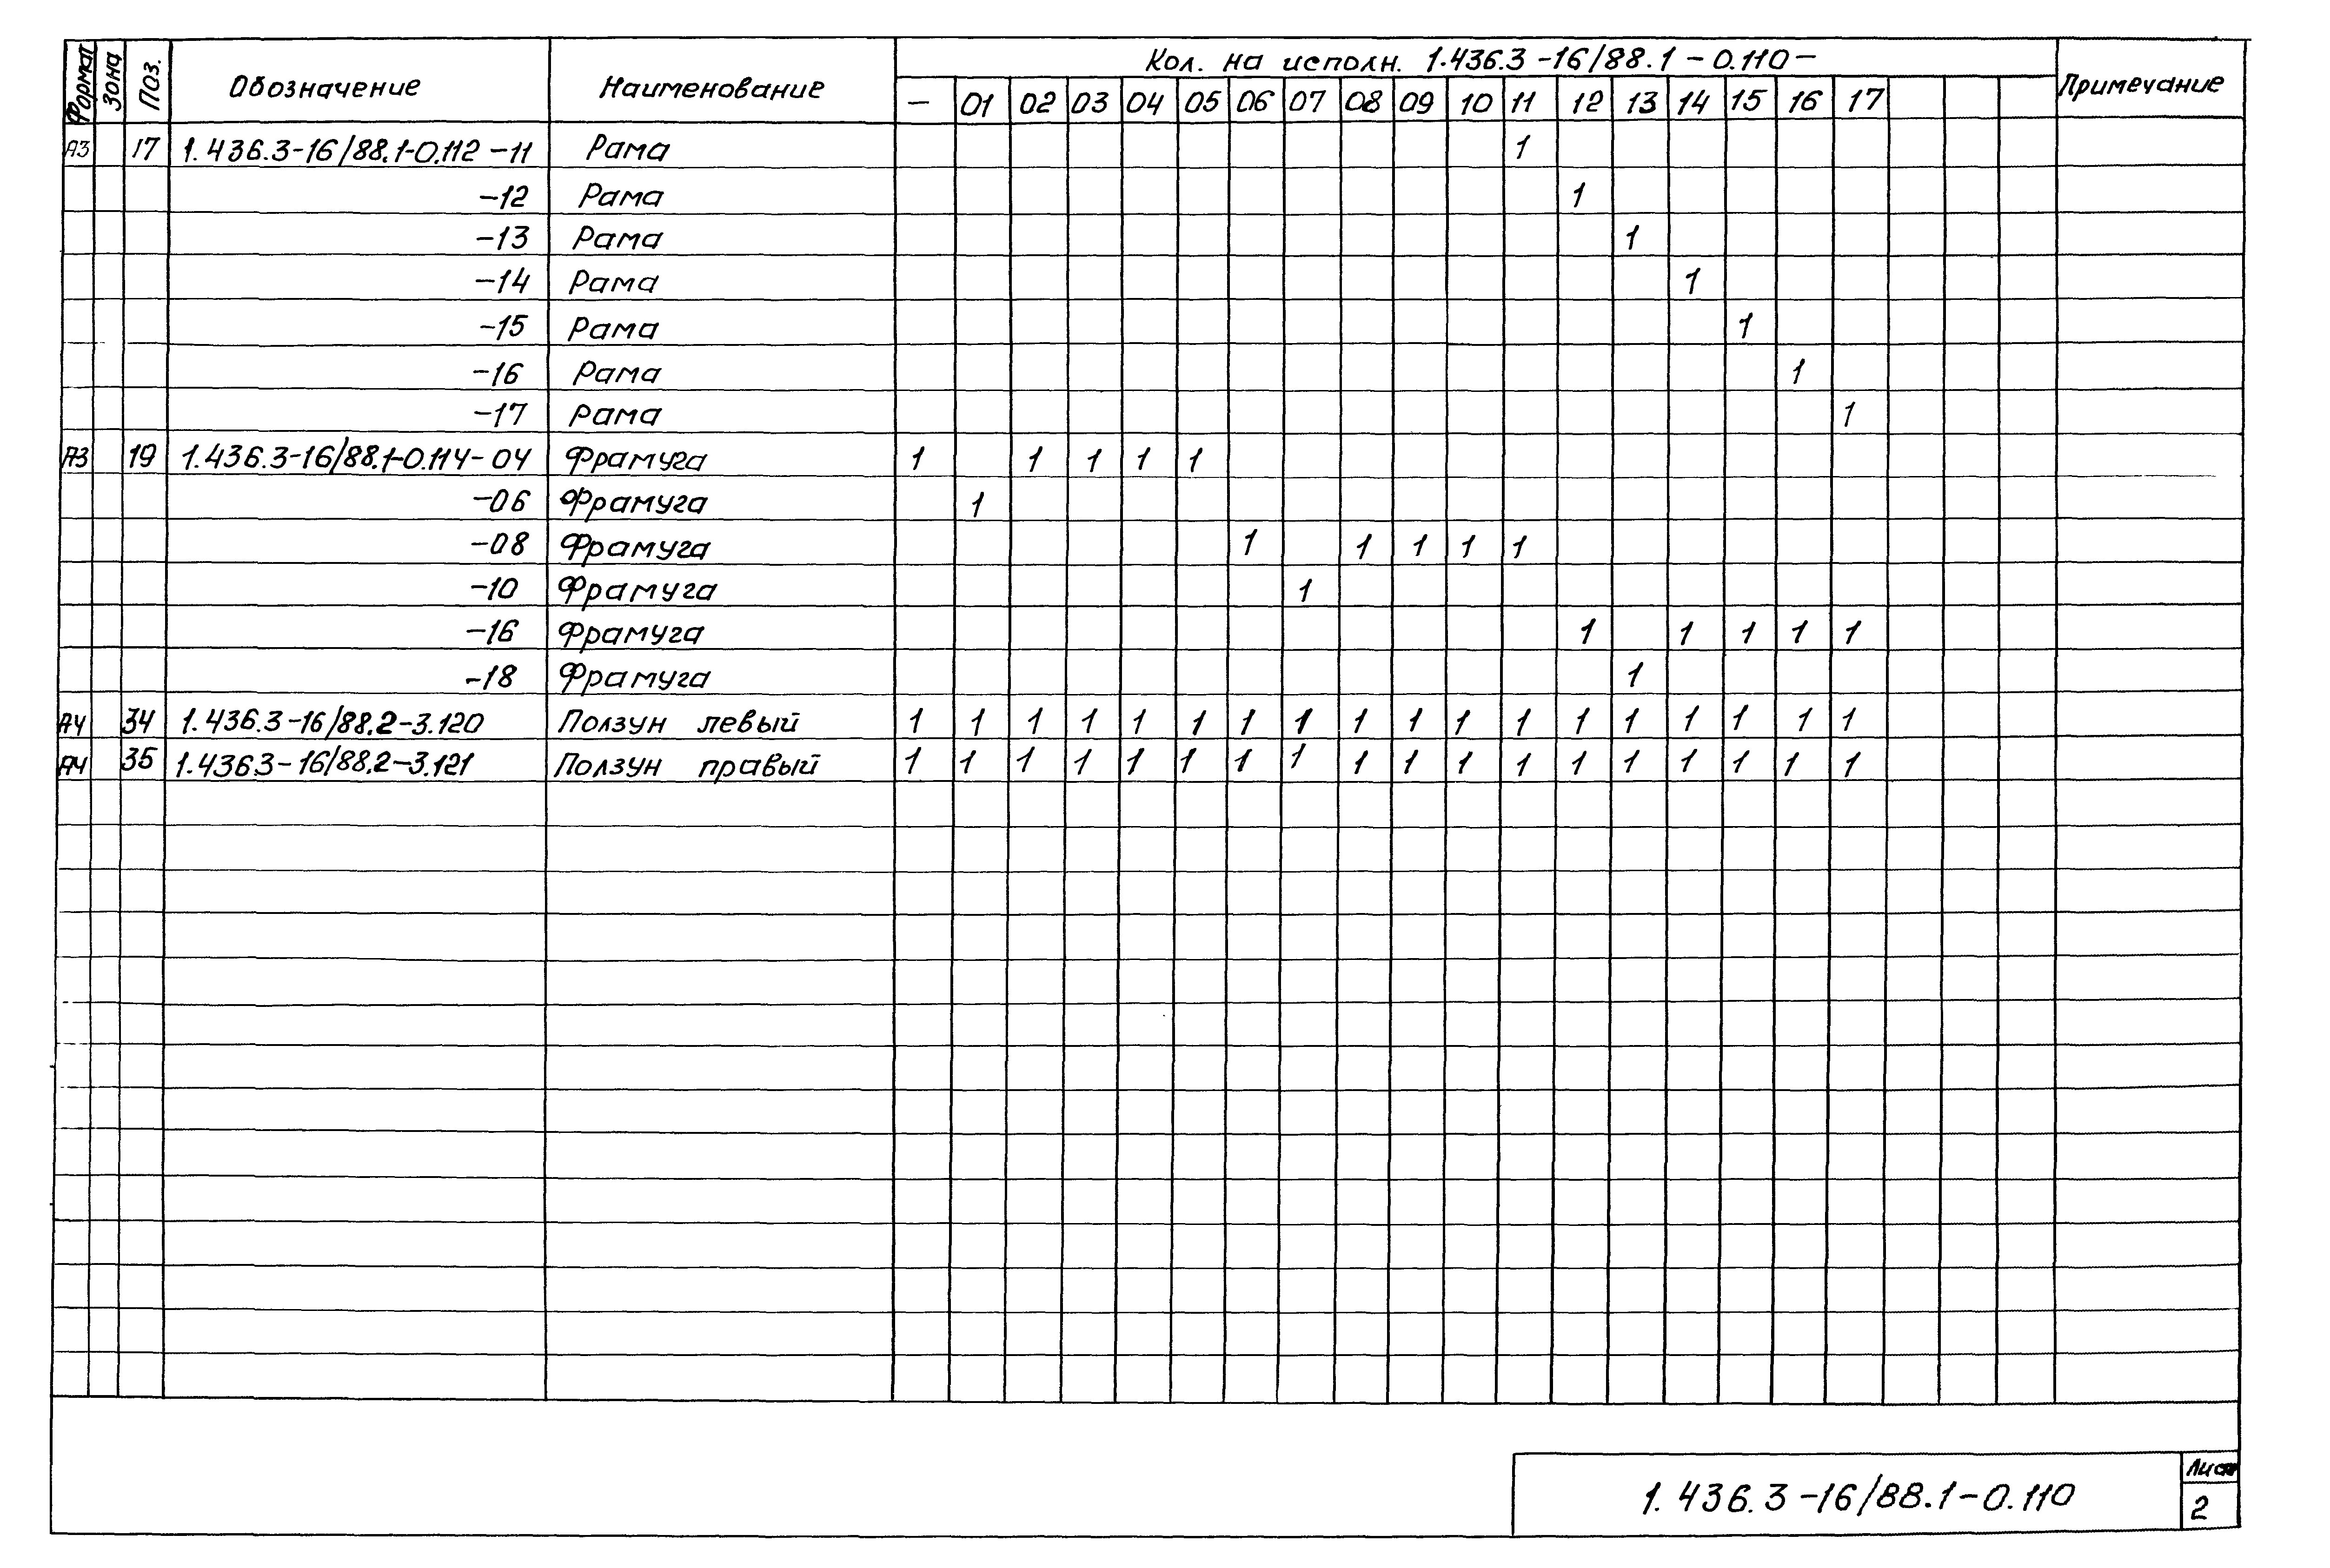 Формат Зона Поз. Обозначение Наименование Кол. на исполн. 1.436.3-16/88.1-0.110- Примечание
- 01 02 03 04 05 06 07 08 09 10 11 12 13 14 15 16 17
А3 17 1.436.3-16/88.1-0.112-11 Рама 1
-12 Рама 1
-13 Рама 1
-14 Рама 1
-15 Рама 1
-16 Рама 1
-17 Рама 1
А3 19 1.436.3-16/88.1-0.114-04 Фрамуга 1 1 1 1 1
-06 Фрамуга 1
-08 Фрамуга 1 1 1 1 1
-10 Фрамуга 1
-16 Фрамуга 1 1 1 1 1
-18 Фрамуга 1
А4 34 1.436.3-16/88.2-3.120 Ползун левый 1 1 1 1 1 1 1 1 1 1 1 1 1 1 1 1 1 1
А4 35 1.436.3-16/88.2-3.121 Ползун правый 1 1 1 1 1 1 1 1 1 1 1 1 1 1 1 1 1 1
1.436.3-16/88.1-0.110
Лист
2